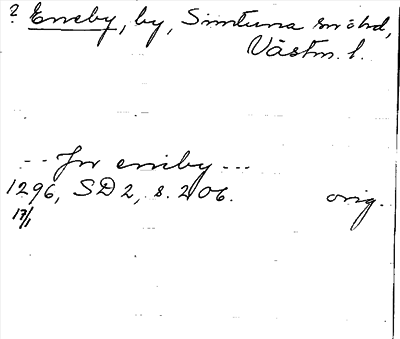 ? Eneby, by, Simtuna snöhd,
Västm. l.
-- Jn eniby ---
1296, SD 2, s. 206. orig.
17/1